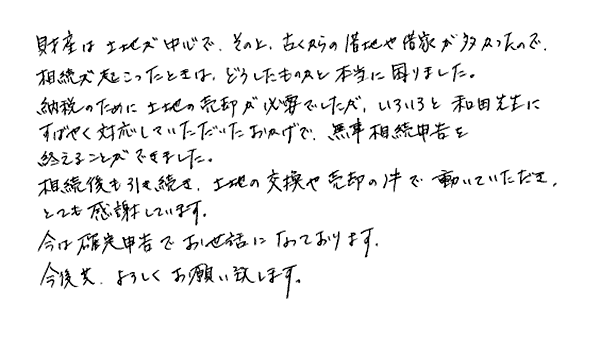 財産は土地が中心で、その上、古くからの借地や借家が多かったので、
相続が起こったときは、どうしたものかと本当に困りました。
納税のために土地の売却が必要でしたが、いろいろと和田先生に
すばやく対応していただいたおかげで、無事相続申告を
終えることができました。
相続後も引き続き、土地の交換や売却の件で動いていただき、
とても感謝しています。
今は確定申告でお世話になっております。
今後共、よろしくお願い致します。